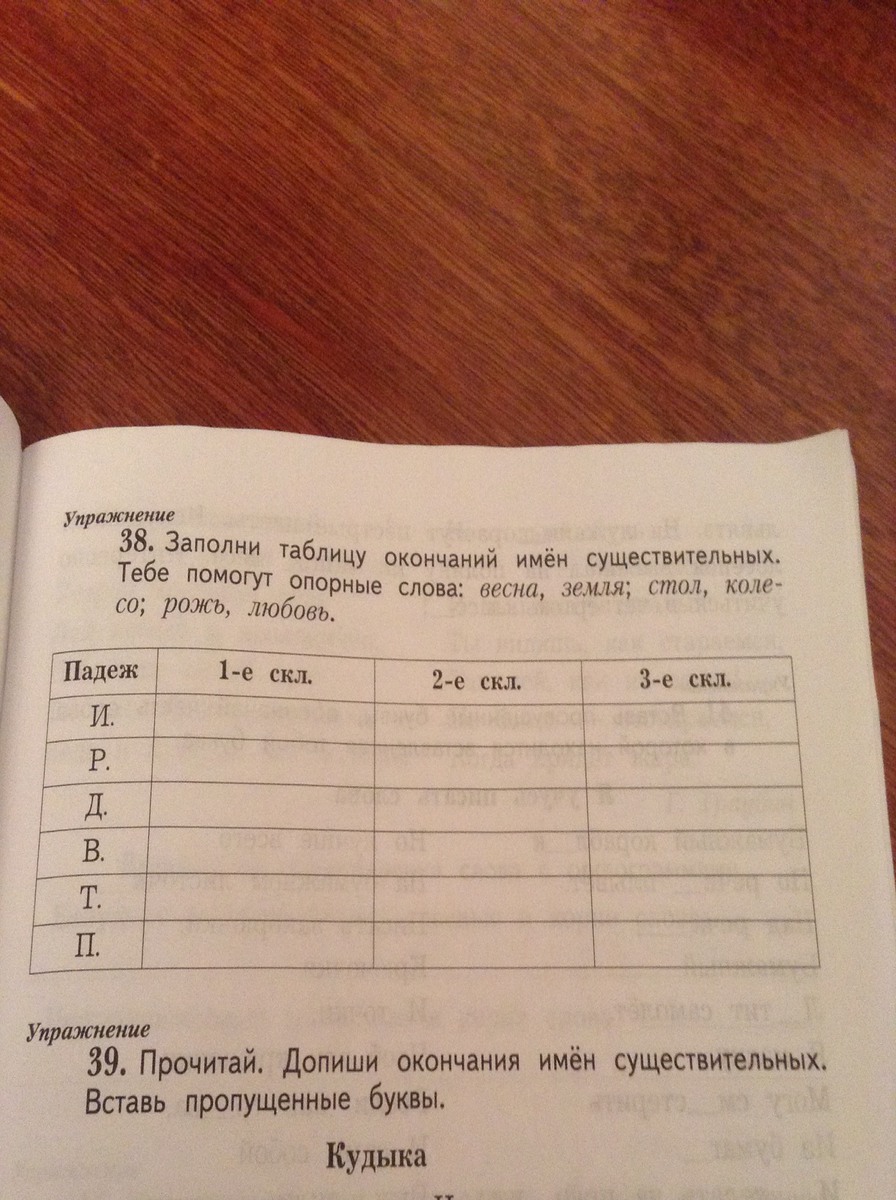 Упражнение
38. Заполни таблицу окончаний имён существительных.
Тебе помогут опорные слова: весна, земля; стол, коле-
со; рожь, любовь.
Падеж 1-е скл. 2-е скл. 3-е скл.
И.
Р.
Д.
В.
Т.
П.
Упражнение
39. Прочитай. Допиши окончания имён существительных.
Вставь пропущенные буквы.
Кудыка